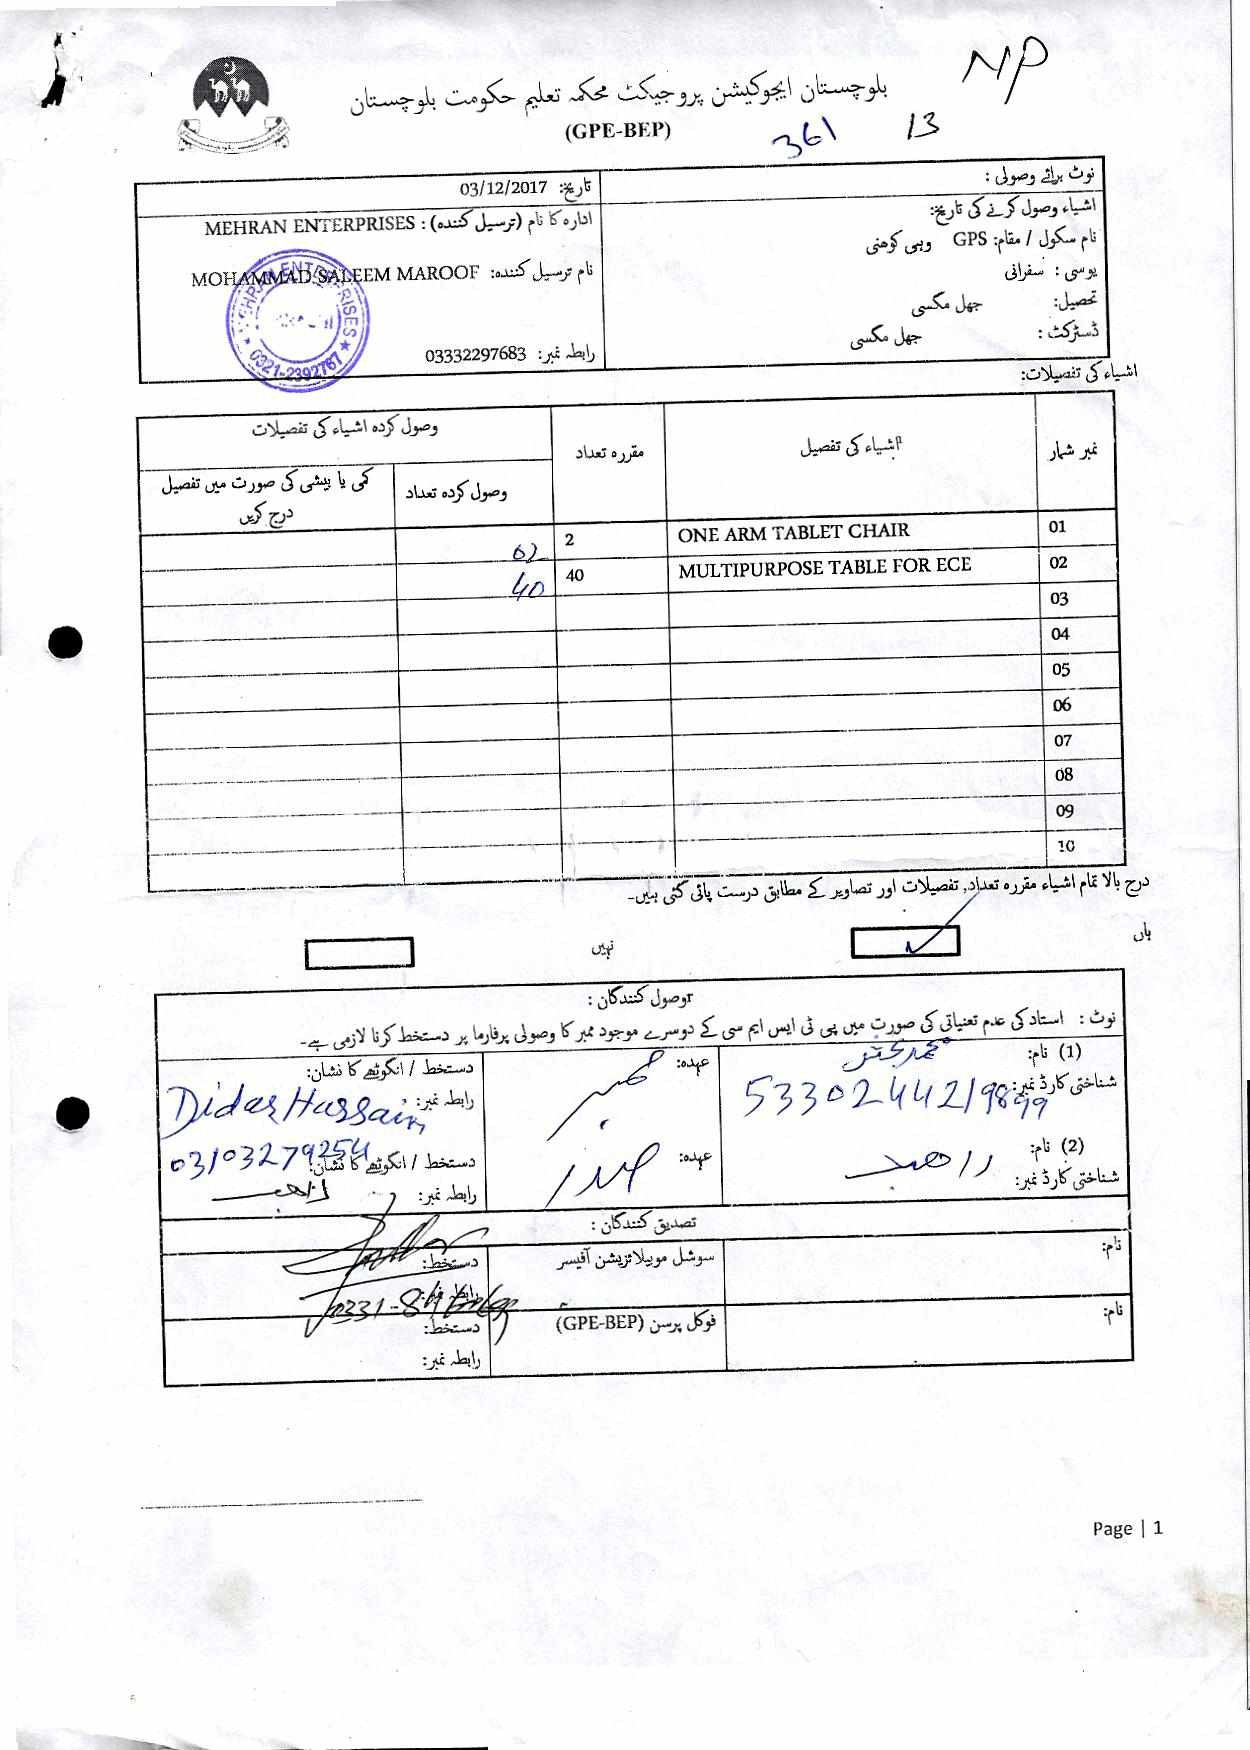 NP
بلوچستان ایجوکیشن پروجیکٹ محکمہ تعلیم حکومت بلوچستان
(GPE-BEP)
361 13
نوٹ برائے وصولی :
اشیاء وصول کرنے کی تاریخ:
نام سکول / مقام: GPS وہی کوھنی
یوسی : سفرانی
تحصیل: جھل مگسی
ڈسٹرکٹ : جھل مگسی
تاریخ: 03/12/2017
ادارہ کا نام (ترسیل کنندہ) : MEHRAN ENTERPRISES
نام ترسیل کنندہ: MOHAMMAD SALEEM MAROOF
رابطہ نمبر: 03332297683
MEHRAN ENTERPRISES ★ 0321-2392767 ★
اشیاء کی تفصیلات:
نمبر شمار اشیاء کی تفصیل مقررہ تعداد وصول کردہ اشیاء کی تفصیلات
وصول کردہ تعداد کمی یا بیشی کی صورت میں تفصیل درج کریں
01 ONE ARM TABLET CHAIR 2 02
02 MULTIPURPOSE TABLE FOR ECE 40 40
03
04
05
06
07
08
09
10
درج بالا تمام اشیاء مقررہ تعداد, تفصیلات اور تصاویر کے مطابق درست پائی گئی ہیں۔
ہاں ✓ نہیں
وصول کنندگان :
نوٹ : استاد کی عدم تعنیاتی کی صورت میں پی ٹی ایس ایم سی کے دوسرے موجود ممبر کا وصولی پرفارما پر دستخط کرنا لازمی ہے۔
(1) نام: عہدہ: ممبر دستخط / انگوٹھے کا نشان:
شناختی کارڈ نمبر: رابطہ نمبر: Didar Hussain
03103279254
(2) نام: عہدہ: صدر دستخط / انگوٹھے کا نشان:
شناختی کارڈ نمبر: رابطہ نمبر:
تصدیق کنندگان :
نام: سوشل موبیلائزیشن آفیسر دستخط:
رابطہ نمبر:
نام: فوکل پرسن (GPE-BEP) دستخط:
رابطہ نمبر:
Page | 1